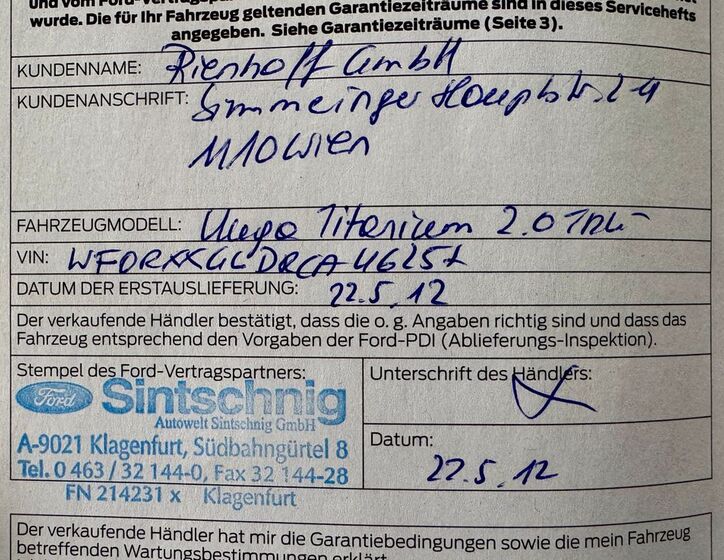 und vom Ford-Vertragspar
wurde. Die für Ihr Fahrzeug geltenden Garantiezeiträume sind in dieses Serviceheft
angegeben. Siehe Garantiezeiträume (Seite 3).
KUNDENNAME: Rienhoff GmbH
KUNDENANSCHRIFT: Simmeringer Hauptstr. 2-4
1110 Wien
FAHRZEUGMODELL: Kuga Titanium 2.0
VIN:
DATUM DER ERSTAUSLIEFERUNG: 22.5.12
Der verkaufende Händler bestätigt, dass die o. g. Angaben richtig sind und dass das
Fahrzeug entsprechend den Vorgaben der Ford-PDI (Ablieferungs-Inspektion).
Stempel des Ford-Vertragspartners:
Ford Sintschnig
Autowelt Sintschnig GmbH
A-9021 Klagenfurt, Südbahngürtel 8
Tel. 0 463 / 32 144-0, Fax 32 144-28
FN 214231 x Klagenfurt
Unterschrift des Händlers:
Datum:
22.5.12
Der verkaufende Händler hat mir die Garantiebedingungen sowie die mein Fahrzeug
betreffenden Wartungsbestimmungen erklärt.